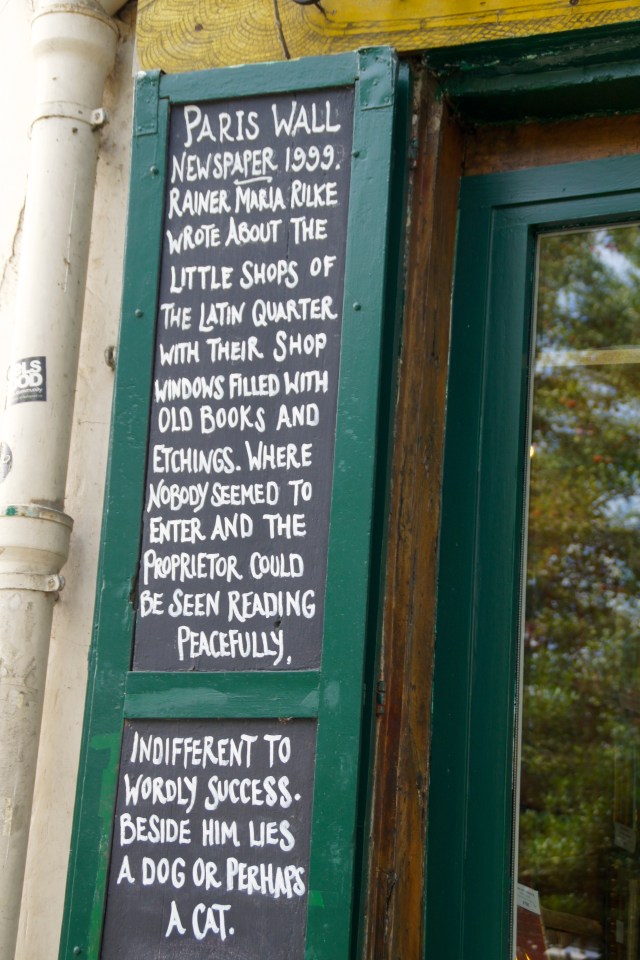 PARIS WALL
NEWSPAPER 1999.
RAINER MARIA RILKE
WROTE ABOUT THE
LITTLE SHOPS OF
THE LATIN QUARTER
WITH THEIR SHOP
WINDOWS FILLED WITH
OLD BOOKS AND
ETCHINGS. WHERE
NOBODY SEEMED TO
ENTER AND THE
PROPRIETOR COULD
BE SEEN READING
PEACEFULLY,
INDIFFERENT TO
WORDLY SUCCESS.
BESIDE HIM LIES
A DOG OR PERHAPS
A CAT.